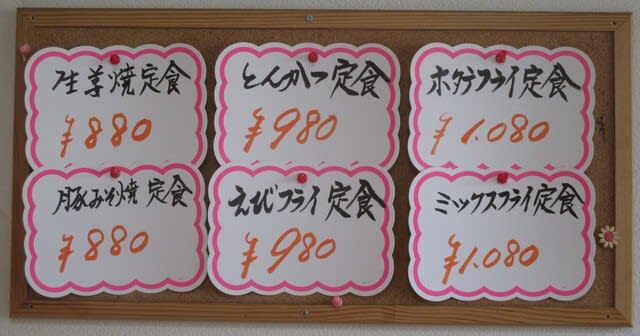 生姜焼定食
¥880
とんかつ定食
¥980
ホタテフライ定食
¥1.080
豚みそ焼定食
¥880
えびフライ定食
¥980
ミックスフライ定食
¥1.080